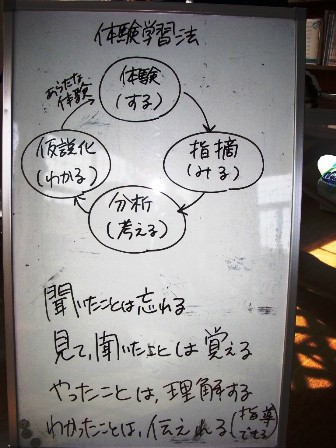 体験学習法
体験
(する)
あらたな
体験
指摘
(みる)
分析
(考える)
仮説化
(わかる)
聞いたことは忘れる
見て,聞いたことは覚える
やったことは,理解する
わかったことは,伝えれる(指導
できる)